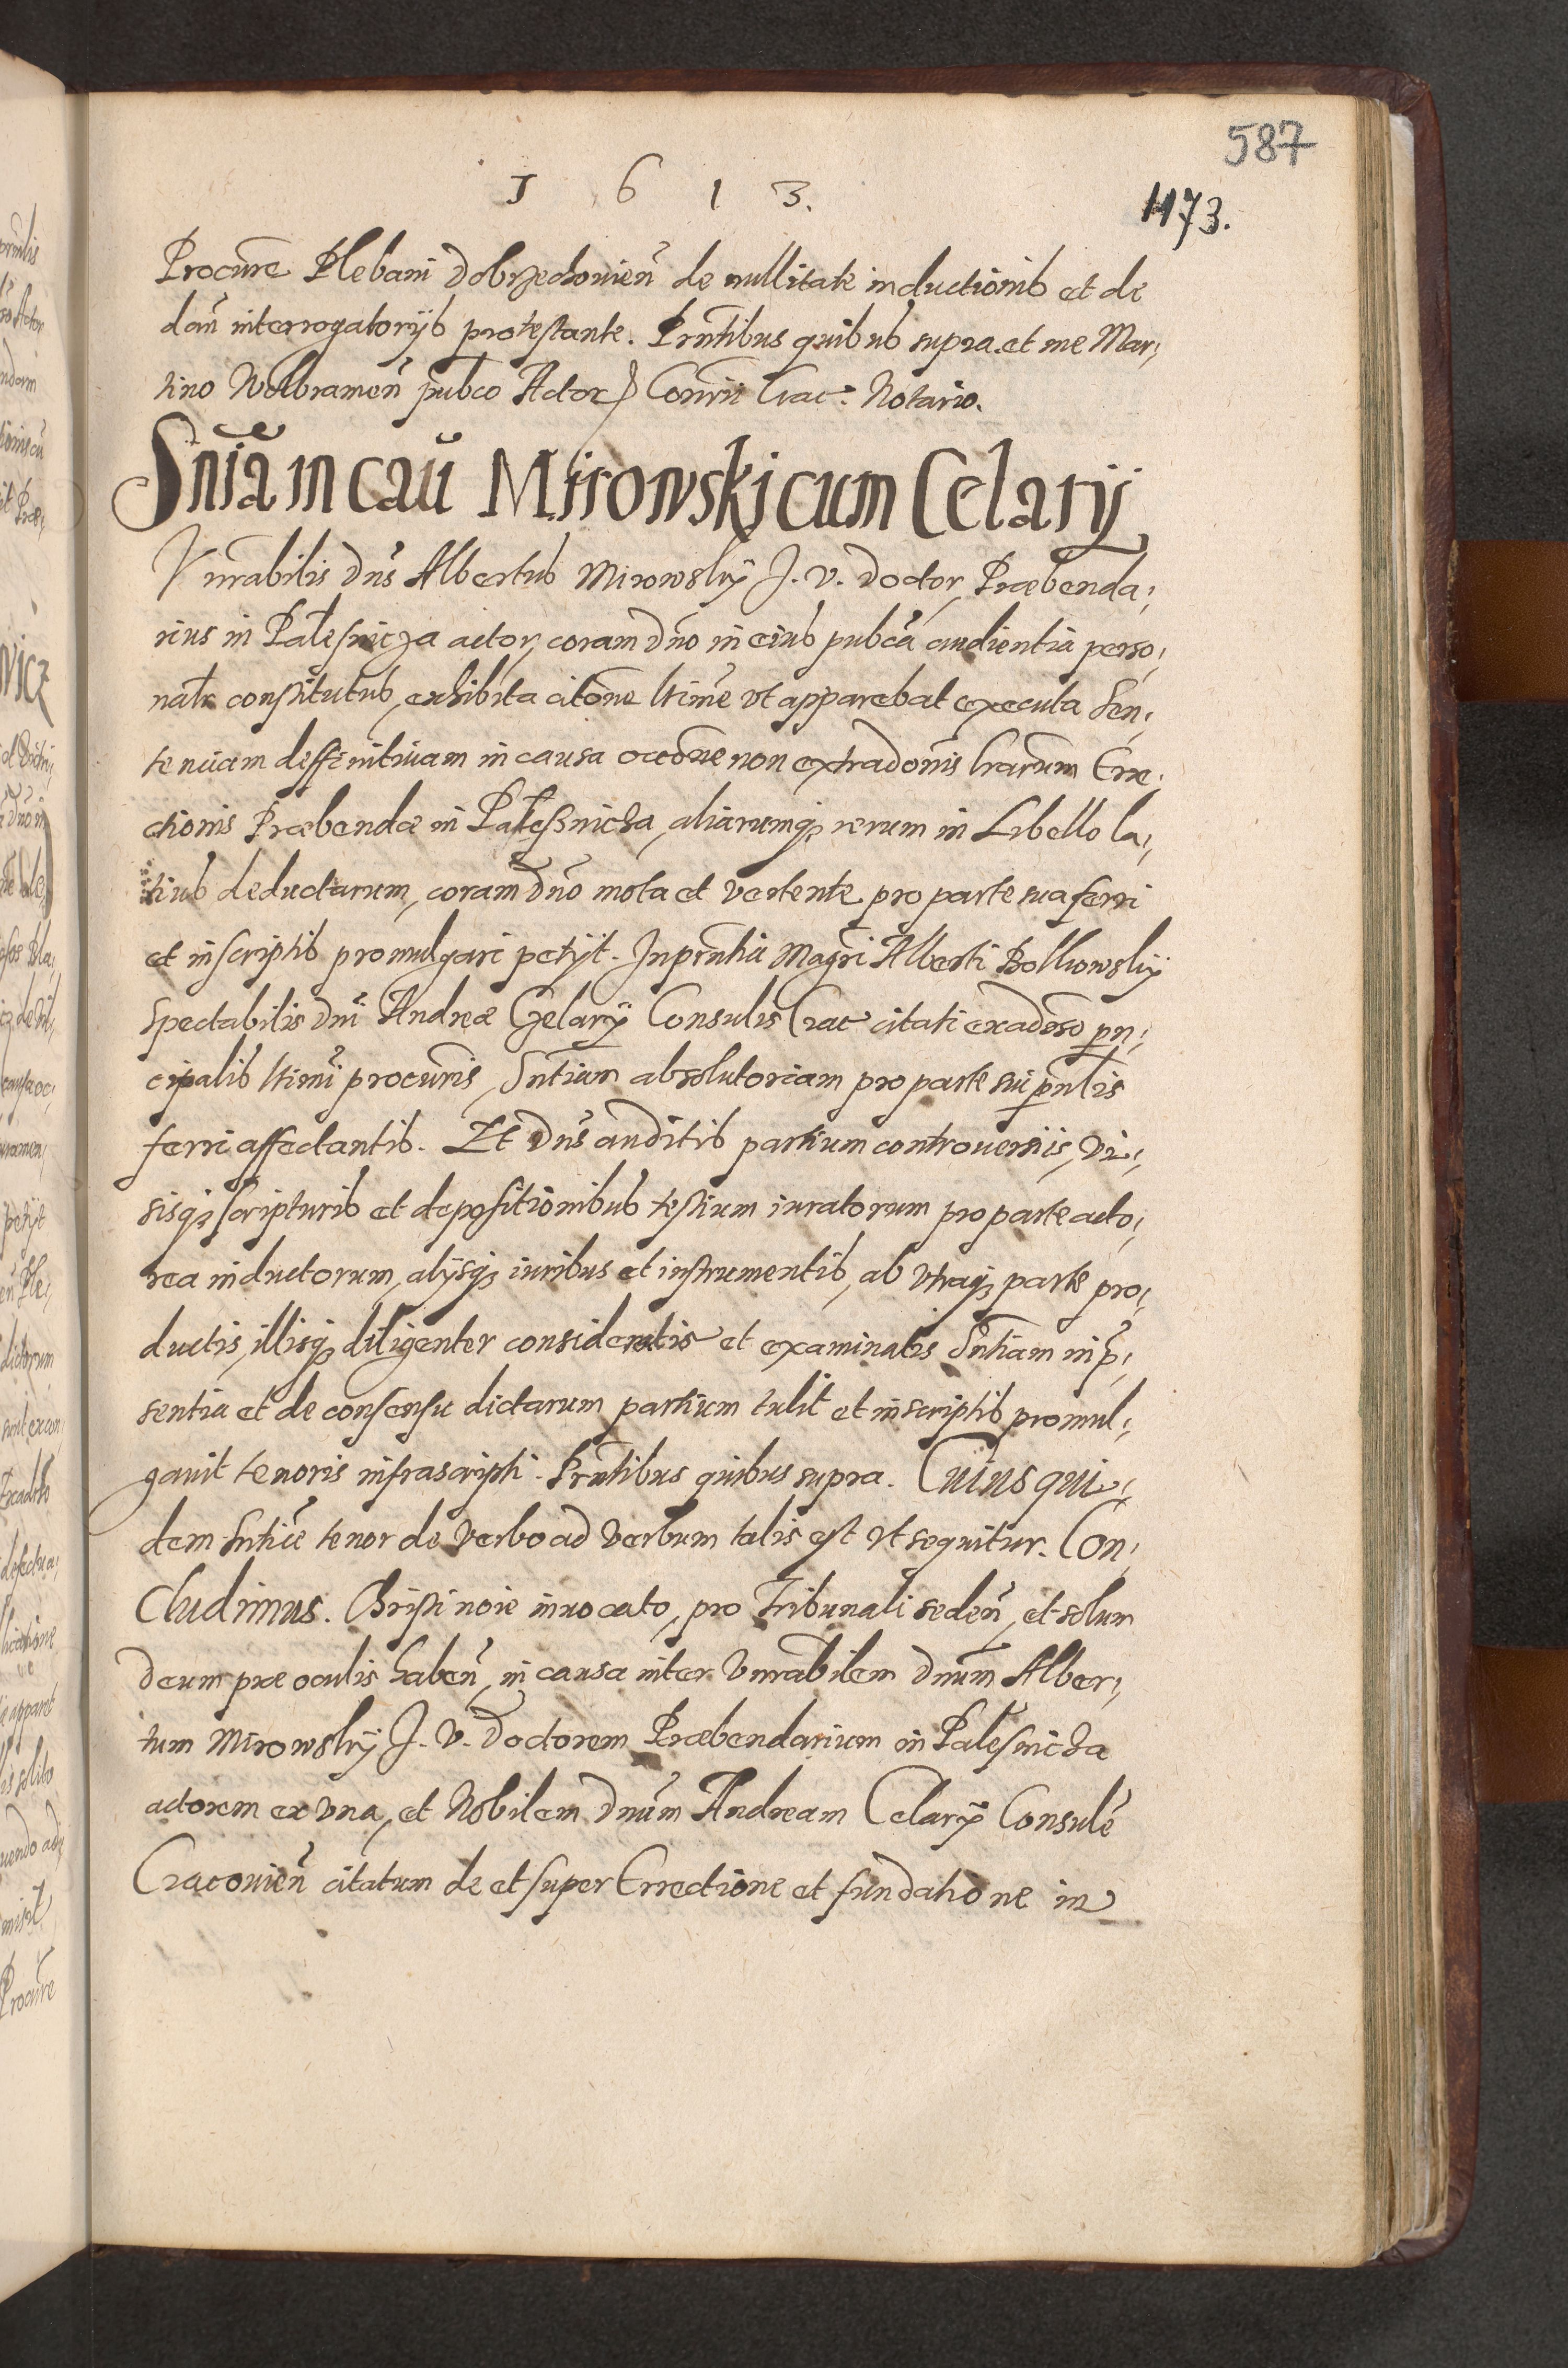 587
1 6 1 3.
1173.
Procure Plebani Dobrzechowien̄ de nullitate inductionis et de
dan̄ interrogatorijs protestante. Prn̄tibus quibus supra et me Mar¡
tino Wolbramen̄ pubco Actor Conrii Crac: Notario.
Sn̄ia in cau Mirowskj cum Celarij
Vnrabilis Dn̄s Albertus Mirowskij J. V. Doctor, Præbenda¡
rius in Palesnicza actor, coram Dn̄o in eius pubca audientia perso¡
nalr constitutus, exhibita citōne ltime vt apparebat executa Sen¡
tentiam deffinitiuam in causa occōne non extradōnis lrarum Erre¡
ctionis Præbendæ in Palessnicza, aliarumq; rerum in Libello la¡
tius deductarum, coram Dn̄o mota et vertente pro parte sua ferri
et in scriptis promulgari petijt. In prn̄tia Magri Alberti Bolkowskij
Spectabilis Dn̄i Andreæ Czelarij Consulis Crac citati ex aduerso prn¡
cipalis ltimi procuris, Sn̄tiam absolutoriam pro parte sui prn̄lis
ferri affectantis. Et Dn̄s auditis partium controuersiis, vi¡
sisq; scripturis et depositionibus testium iuratorum pro parte acto¡
rea inductorum, alijsq; iuribus et instrumentis, ab vtraq; parte pro¡
ductis, illisq; diligenter consideratis et examinatis Sn̄tiam in p̄¡
sentia et de consensu dictarum partium tulit et in scriptis promul¡
gauit tenoris infrascripti. Prn̄tibus quibus supra. Cuius qui¡
dem Sn̄tiæ tenor de verbo ad verbum talis est vt sequitur. Con¡
Cludimus. Christi noīe inuocato, pro Tribunali seden̄, et solum
Deum præ oculis haben̄, in causa inter Vnrabilem Dnūm Alber¡
tum Mirowskij J. V. Doctorem Præbendarium in Palesnicza
actorem ex vna, et Nobilem Dnūm Andream Celarij Consulē
Cracouien̄ citatum de et super Errectione et fundatione in